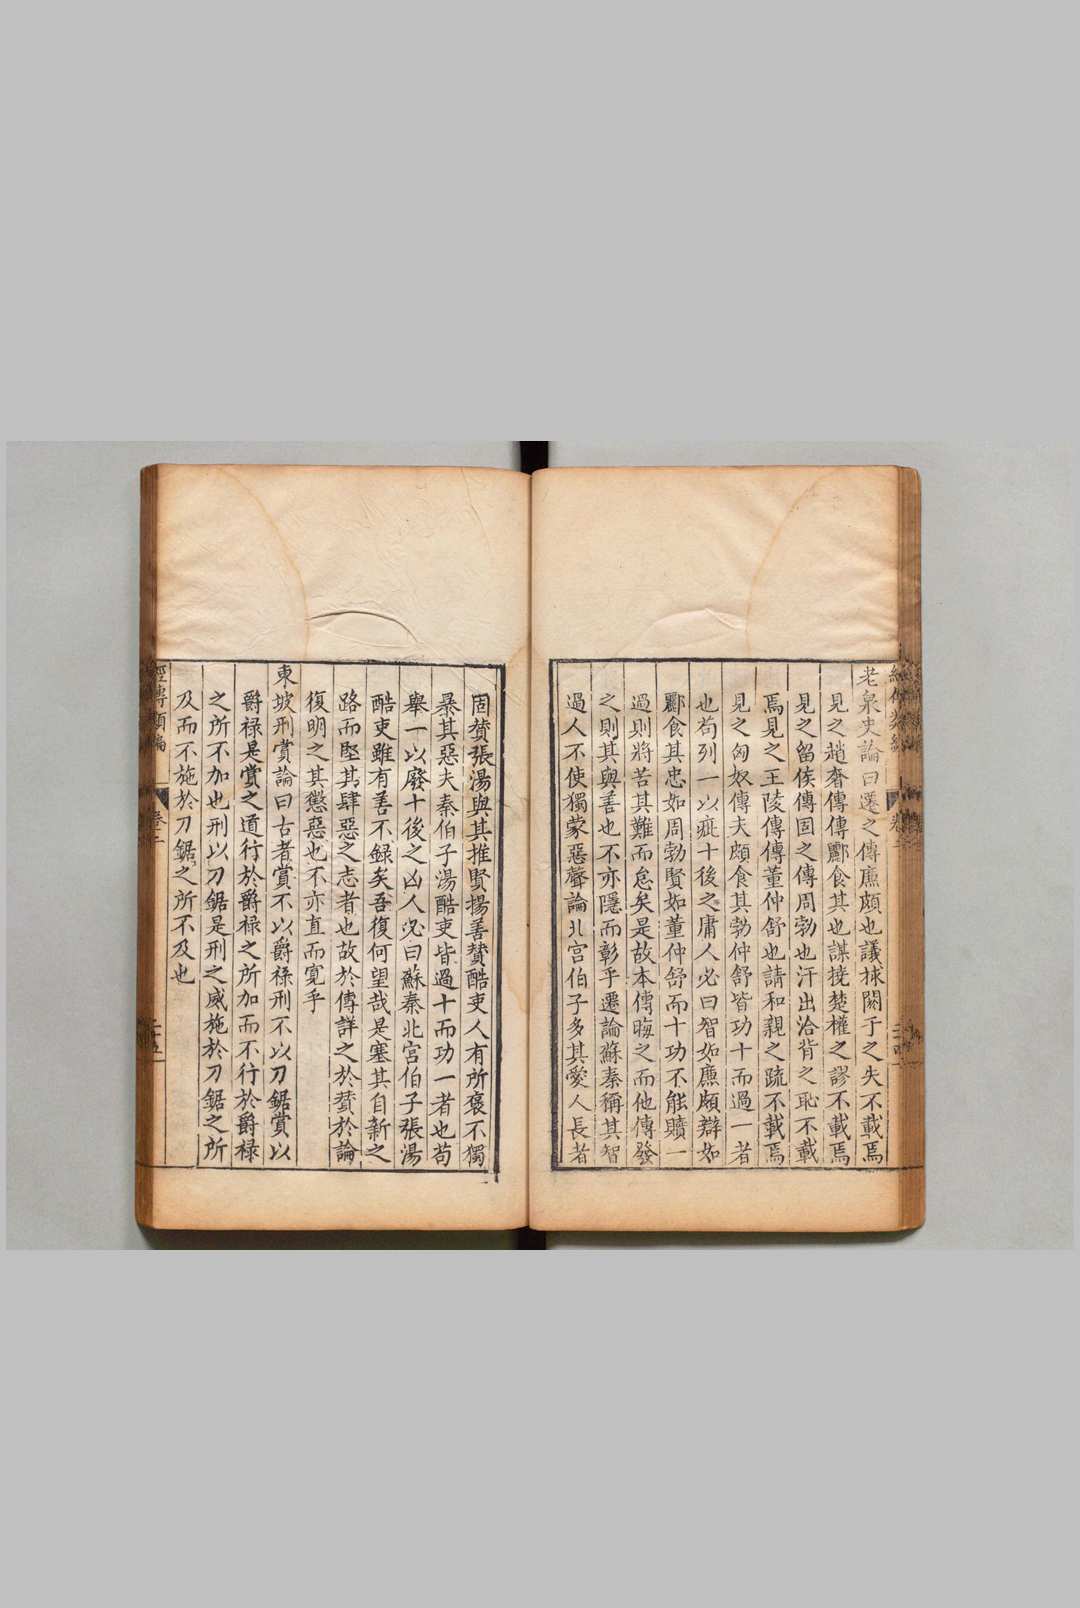 老泉史論曰遷之傳廉頗也議捄閼于之失不載焉
見之趙奢傳傳酈食其也謀撓楚權之謬不載焉
見之留侯傳固之傳周勃也汗出洽背之恥不載
焉見之王陵傳傳董仲舒也請和親之疏不載焉
見之匈奴傳夫頗食其勃仲舒皆功十而過一者
也苟列一以疵十後之庸人必曰智如廉頗辯如
酈食其忠如周勃賢如董仲舒而十功不能贖一
過則將苦其難而怠矣是故本傳晦之而他傳發
之則其與善也不亦隱而彰乎遷論蘇秦稱其智
過人不使獨蒙惡聲論北宮伯子多其愛人長者
固贊張湯與其推賢揚善贊酷吏人有所褒不獨
暴其惡夫秦伯子湯酷吏皆過十而功一者也苟
舉一以廢十後之凶人必曰蘇秦北宮伯子張湯
酷吏雖有善不録矣吾復何望哉是塞其自新之
路而堅其肆惡之志者也故於傳詳之於贊於論
復明之其懲惡也不亦直而寬乎
東坡刑賞論曰古者賞不以爵祿刑不以刀鋸賞以
爵祿是賞之道行於爵祿之所加而不行於爵祿
之所不加也刑以刀鋸是刑之威施於刀鋸之所
及而不施於刀鋸之所不及也
經傳類編
卷二
二十五